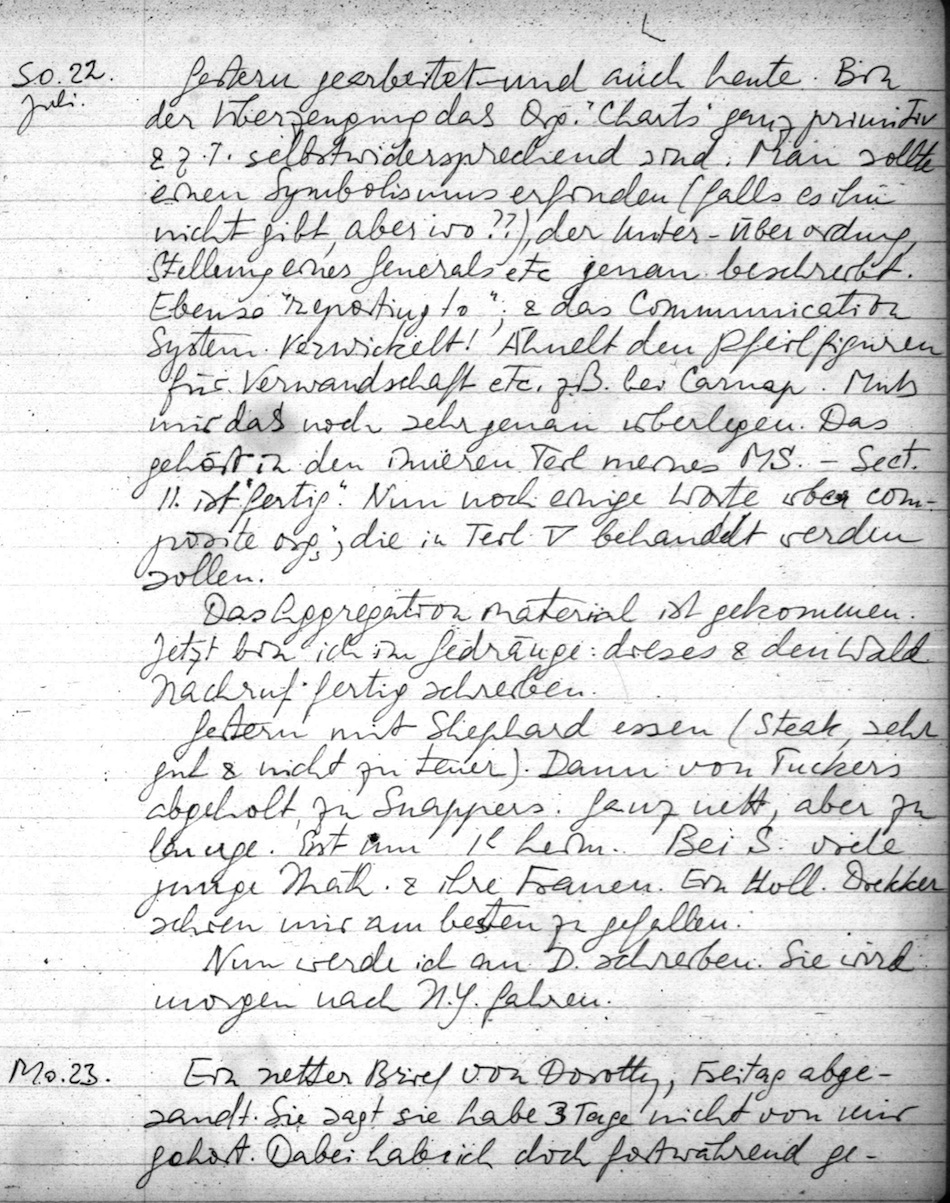 So. 22. Gestern gearbeitet und auch heute. Bin
Juli. der Überzeugung das Org. "Charts" ganz primitiv
& z.T. selbstwidersprechend sind. Man sollte
einen Symbolismus erfinden (falls es ihn
nicht gibt, aber wo??), der Unter-Überordung,
Stellung eines Generals etc genau beschreibt.
Ebenso "reporting to", & das Communication
System. Verwickelt! Ähnelt den Pfeilfiguren
für Verwandschaft etc. z.B. bei Carnap. Muss
mir das noch sehr genau überlegen. Das
gehört in den inneren Teil meines MS. – Sect.
11. ist "fertig". Nun noch einige Worte über com-
posite org.", die in Teil V behandelt werden
sollen.
Das Aggregation material ist gekommen.
Jetzt bin ich im Gedränge: dieses & den Wald
Nachruf fertig schreiben.
Gestern mit Shephard essen (Steak, sehr
gut & nicht zu teuer). Dann von Tuckers
abgeholt, zu Snappers. Ganz nett, aber zu
lange. Erst um 1h heim. Bei S. viele
junge Math. & ihre Frauen. Ein Holl. Dekker
schien mir am besten zu gefallen.
Nun werde ich an D. schreiben. Sie wird
morgen nach N.Y. fahren.
Mo. 23. Ein netter Brief von Dorothy, Freitag abge-
sandt. Sie sagt sie habe 3 Tage nicht von mir
gehört. Dabei habe ich doch fortwährend ge-